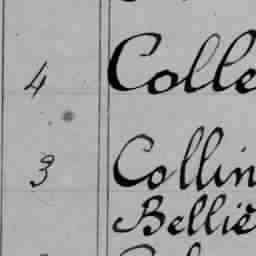 4 Colle
3 Collin
Belliè